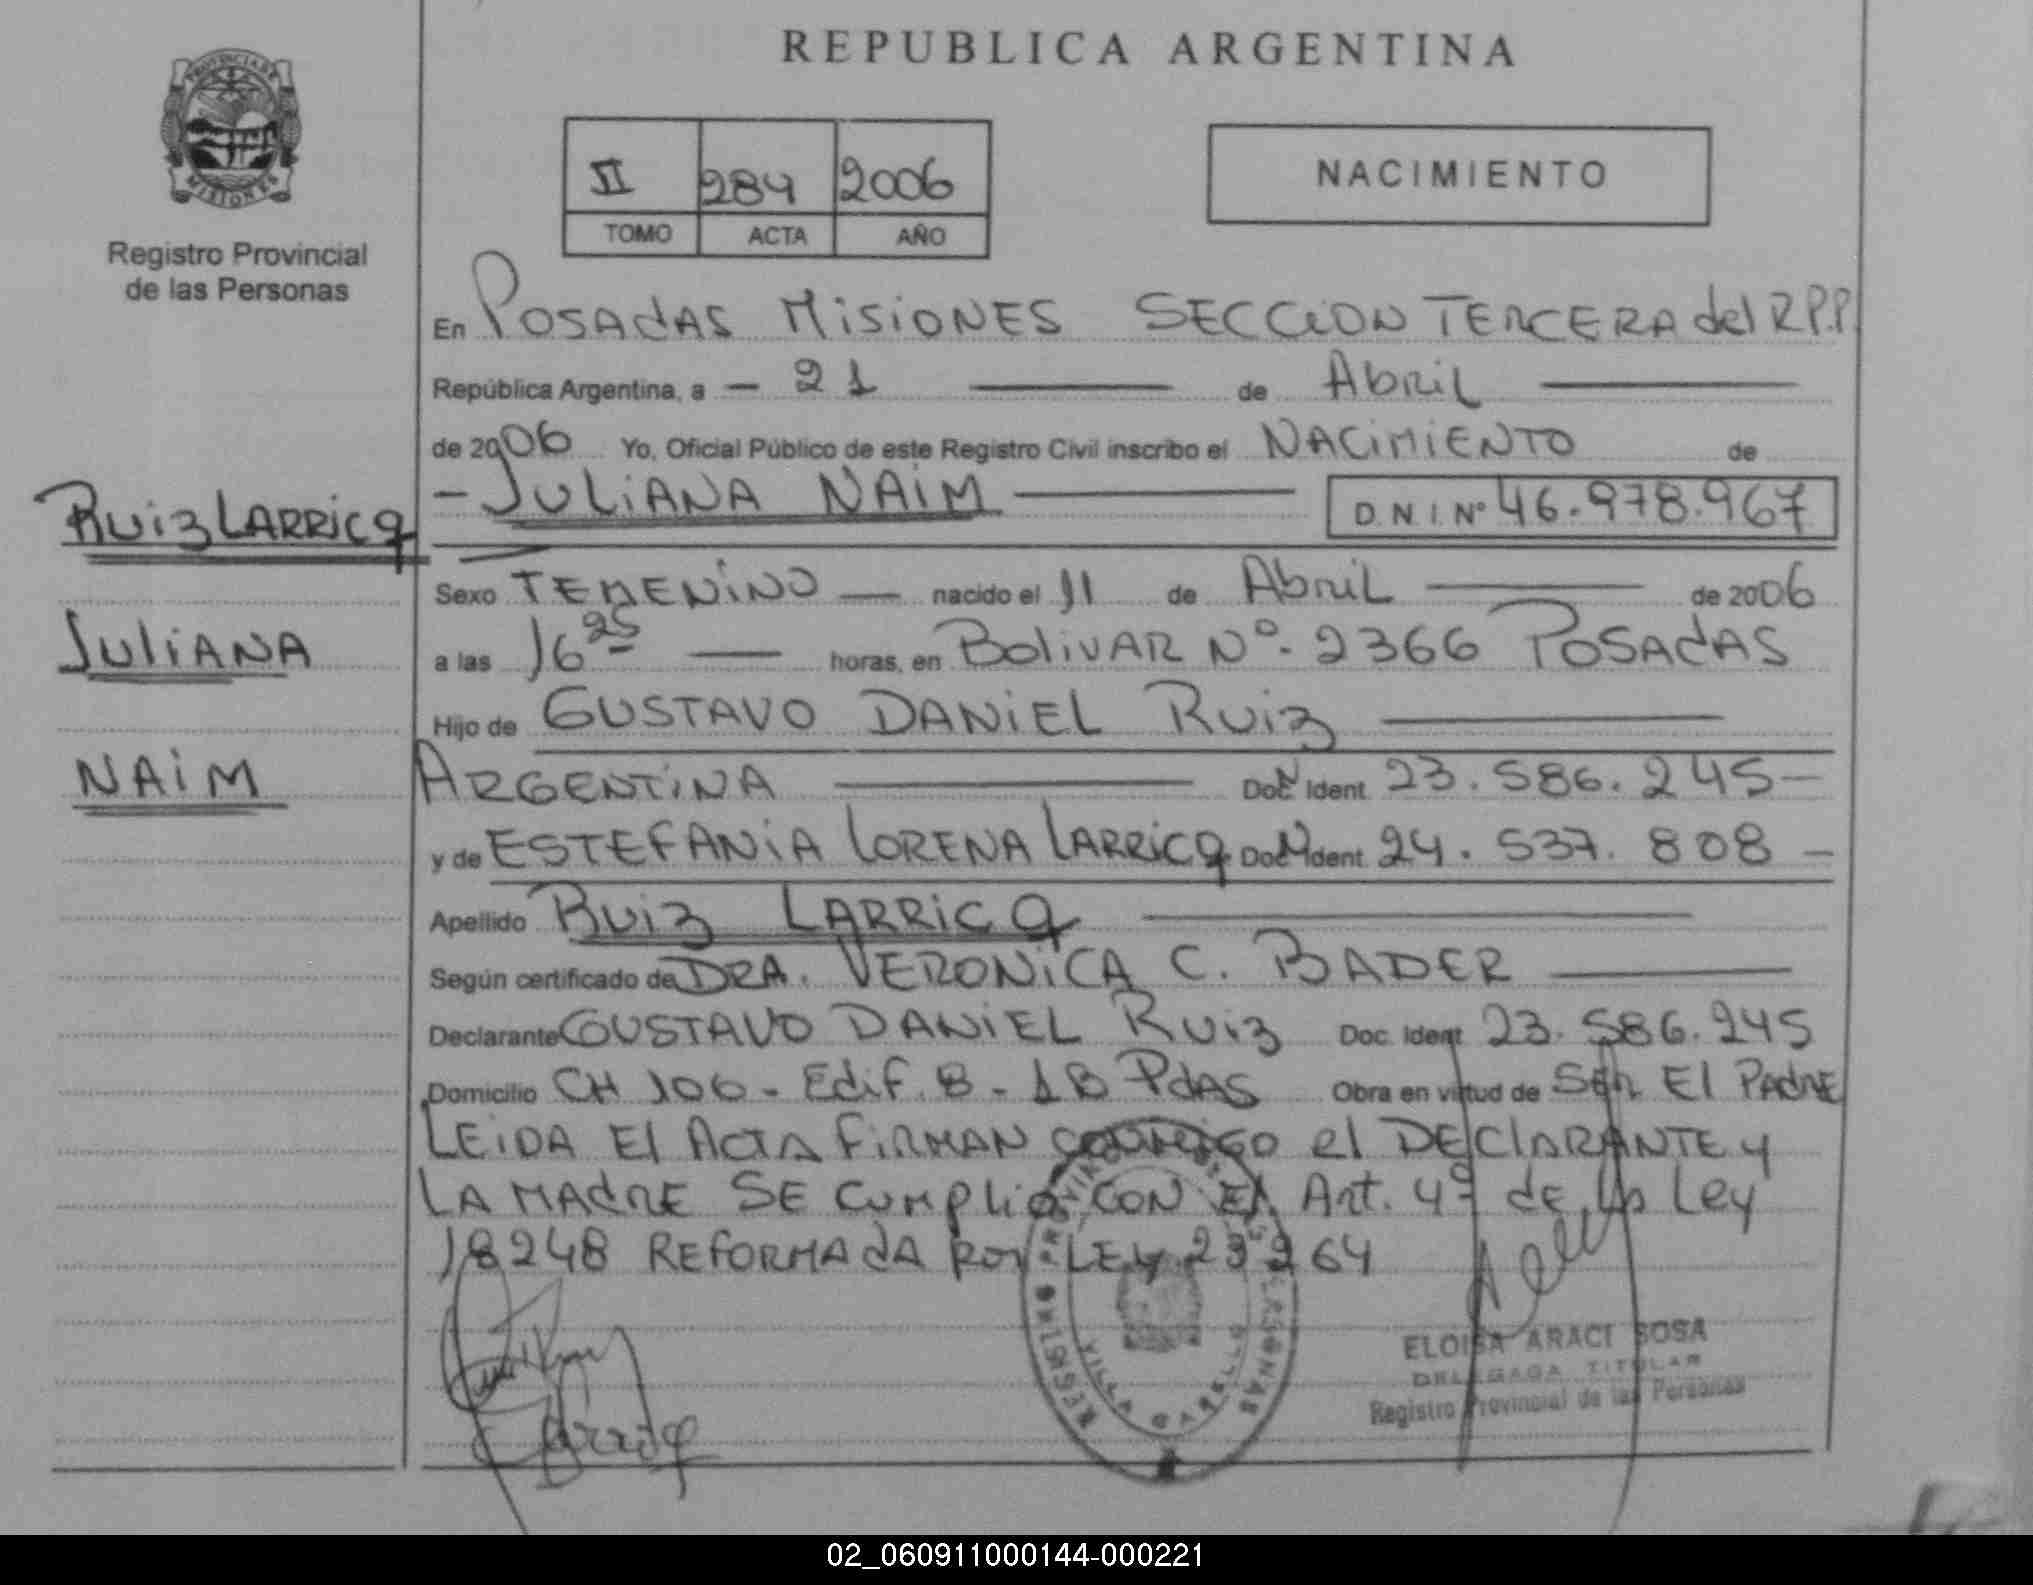 REPUBLICA ARGENTINA
PROVINCIA DE
MISIONES
Registro Provincial
de las Personas
II 284 2006
TOMO ACTA AÑO
NACIMIENTO
En POSAdAS MiSiONES SECCiON TERCERA del R.P.P.
República Argentina, a — 21 — de Abril —
de 2006 Yo, Oficial Público de este Registro Civil inscribo el NACiMiENTO de
— JULiANA NAiM — D.N.I. Nº 46.978.967
Ruiz LARRicq
JULiANA
NAiM
Sexo FEMENiNO — nacido el 11 de Abril — de 2006
a las 16 25 — horas, en BoliVAR Nº. 2366 POSAdAS
Hijo de GUSTAVO DANiEL Ruiz —
ARGENTiNA — Doc. Ident. 23.586.245 —
y de ESTEFANiA LORENA LARRicq Doc. Ident. 24.537.808 —
Apellido Ruiz LARRicq —
Según certificado de DRA. VERONiCA C. BADER —
Declarante GUSTAVO DANiEL Ruiz Doc. Ident. 23.586.245
Domicilio CH 106 - Edif. 8 - 1B PdAS Obra en virtud de SER El PAdRE
LEiDA El ActA FiRMAN CONMiGO el DEClARANTE y
LA MAdRE SE CUMPLiO CON El Art. 4º de la Ley
18248 REFORMAdA POR LEy 23264
REGISTRO PROVINCIAL DE LAS PERSONAS
VILLA CABELLO
ELOISA ARACI SOSA
DELEGADA TITULAR
Registro Provincial de las Personas
Larricq
02_060911000144-000221